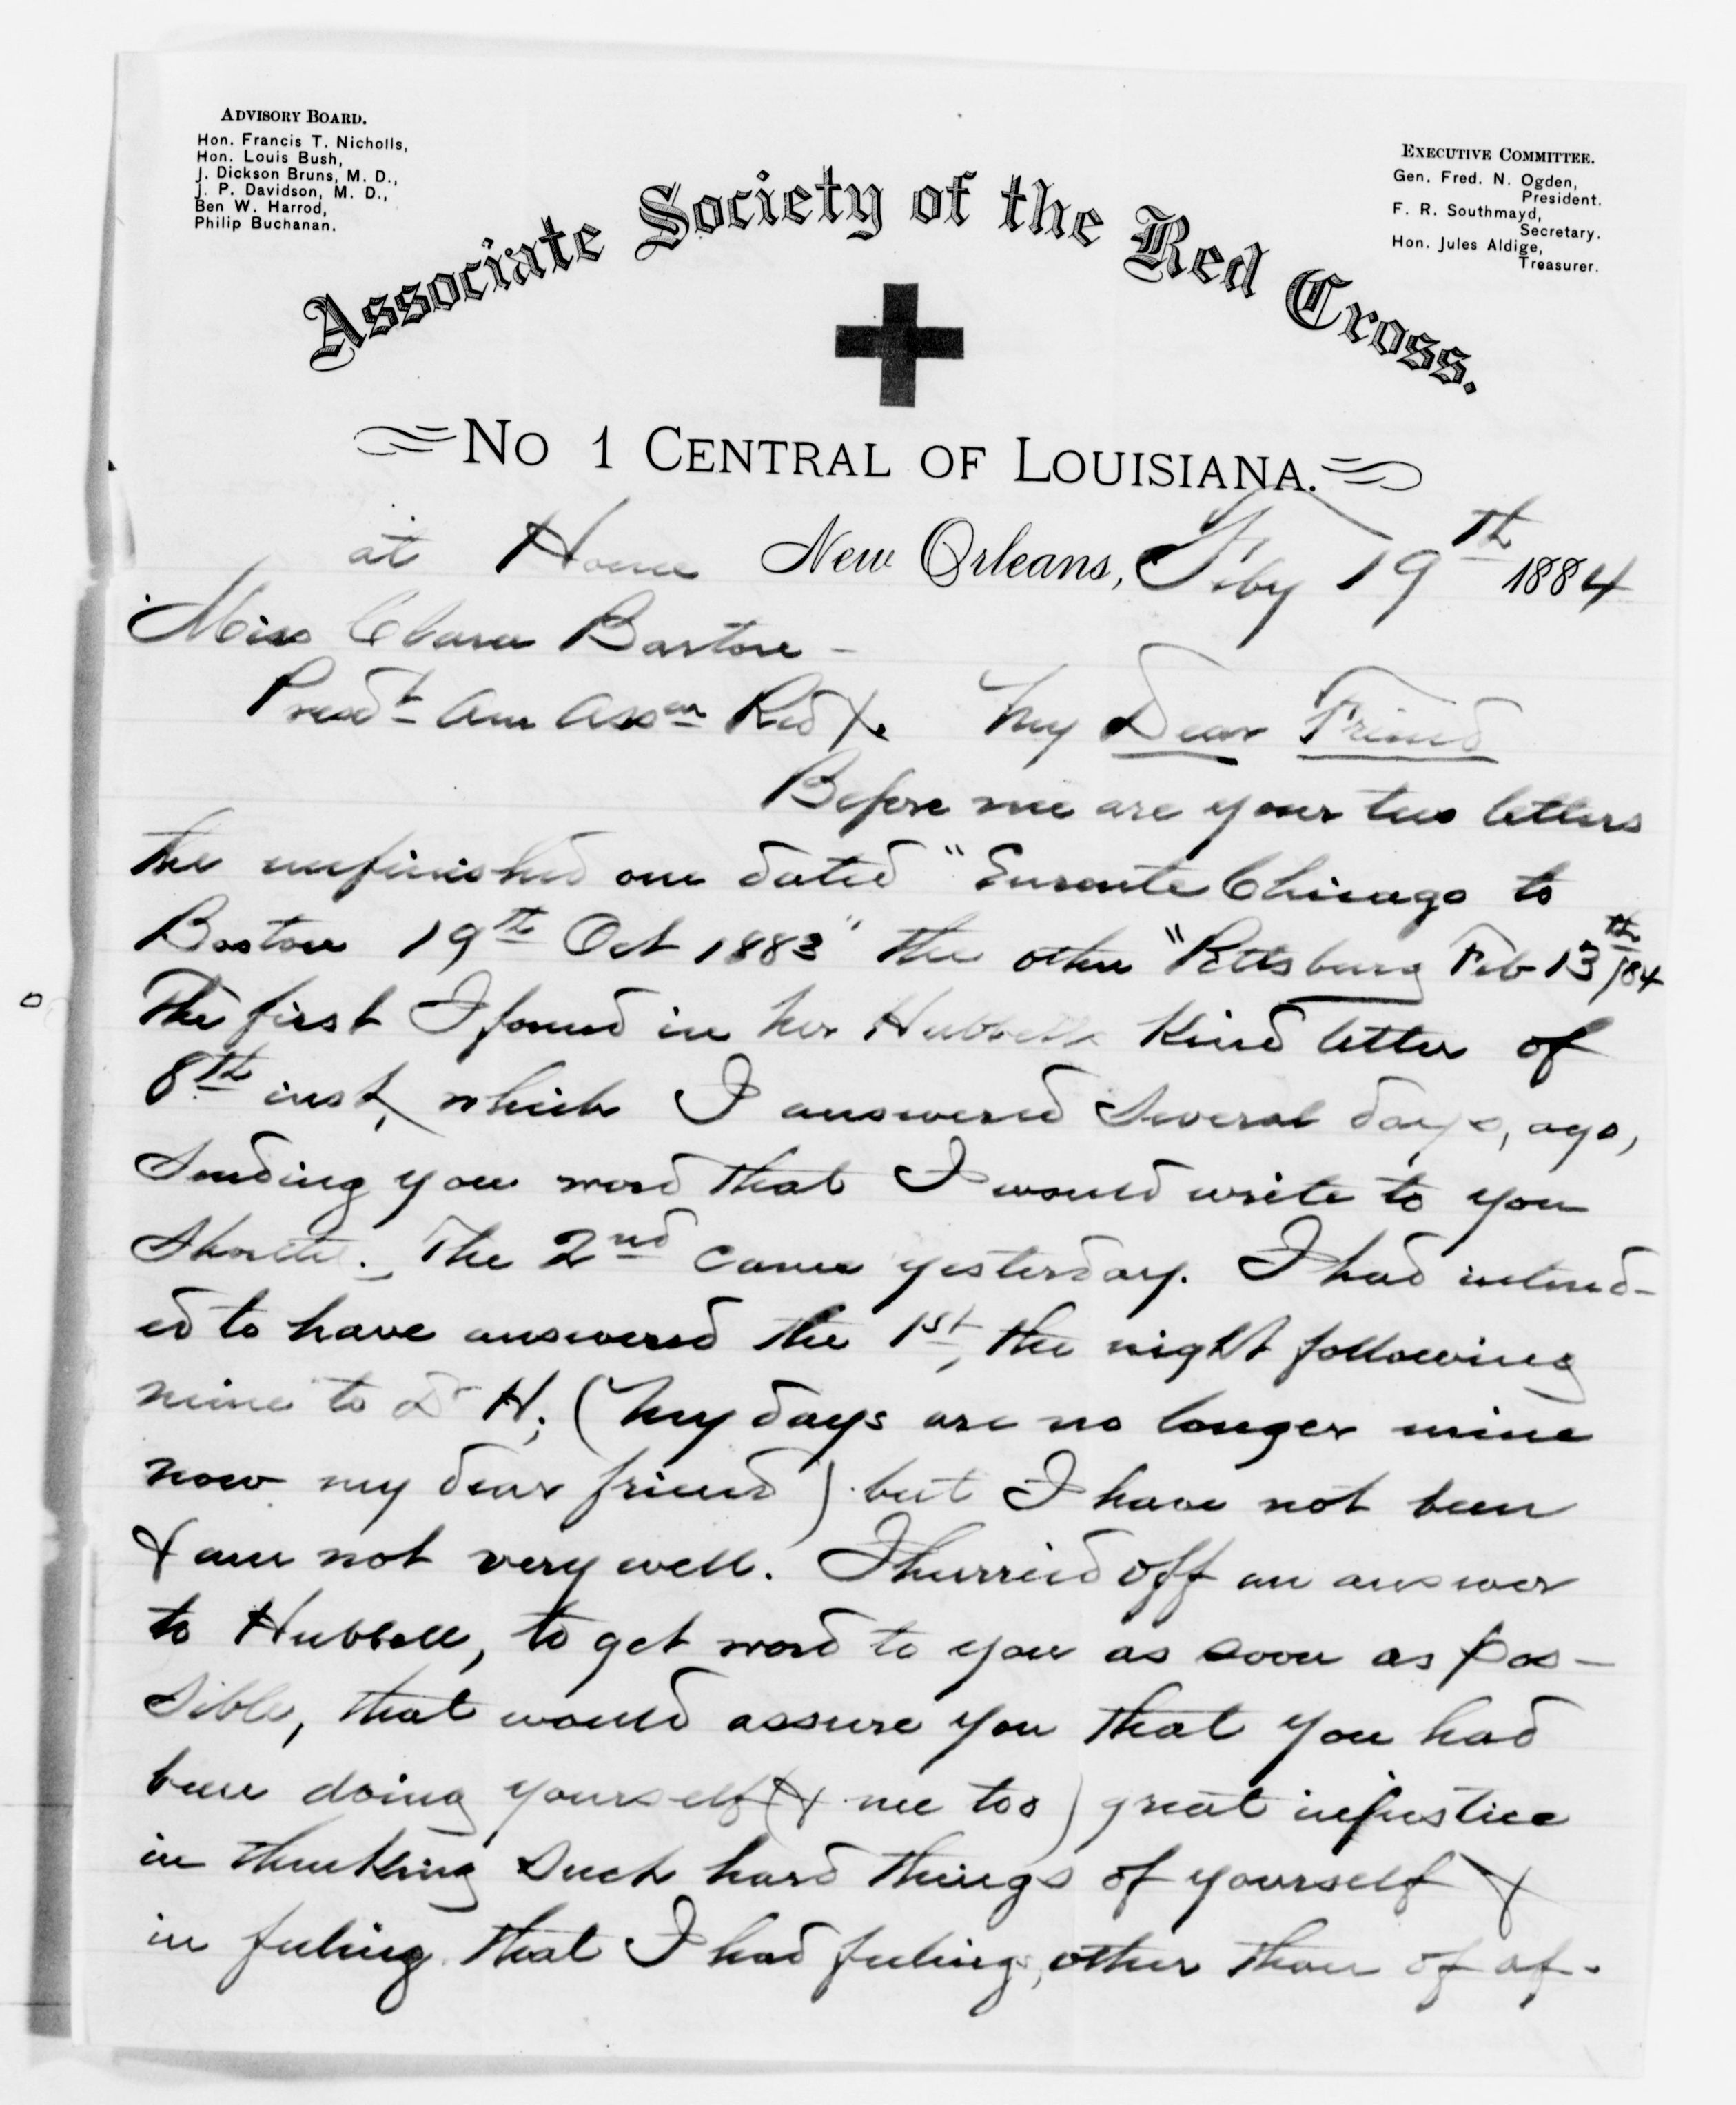 ADVISORY BOARD.
Hon. Francis T. Nicholls,
Hon. Louis Bush,
J. Dickson Bruns, M. D.,
J. P. Davidson, M. D.,
Ben W. Harrod,
Philip Buchanan.
EXECUTIVE COMMITTEE.
Gen. Fred. N. Ogden,
President.
F. R. Southmayd,
Secretary.
Hon. Jules Aldige,
Treasurer.
Associate Society of the Red Cross.
No 1 CENTRAL OF LOUISIANA.
at Home New Orleans, Feby 19th 1884
Miss Clara Barton -
Presdt Am Assn Red X. My Dear Friend
Before me are your two letters
the unfinished one dated "Enroute Chicago to
Boston 19th Oct 1883" the other "Pittsburg Feb 13th/84
The first I found in Kind letter of
8th inst, which I answered several days, ago,
sending you word that I would write to you
The 2nd came yesterday. I had intend-
ed to have answered the 1st, the night following
mine to Dr H, (My days are no longer mine
now my dear friend) but I have not been
& am not very well. I hurried off an answer
to Hubbell, to get word to you as soon as pos-
sible, that would assure you that you had
been doing yourself (& me too) great injustice
in thinking such hard things of yourself &
in feeling that I had feelings, other than of af-